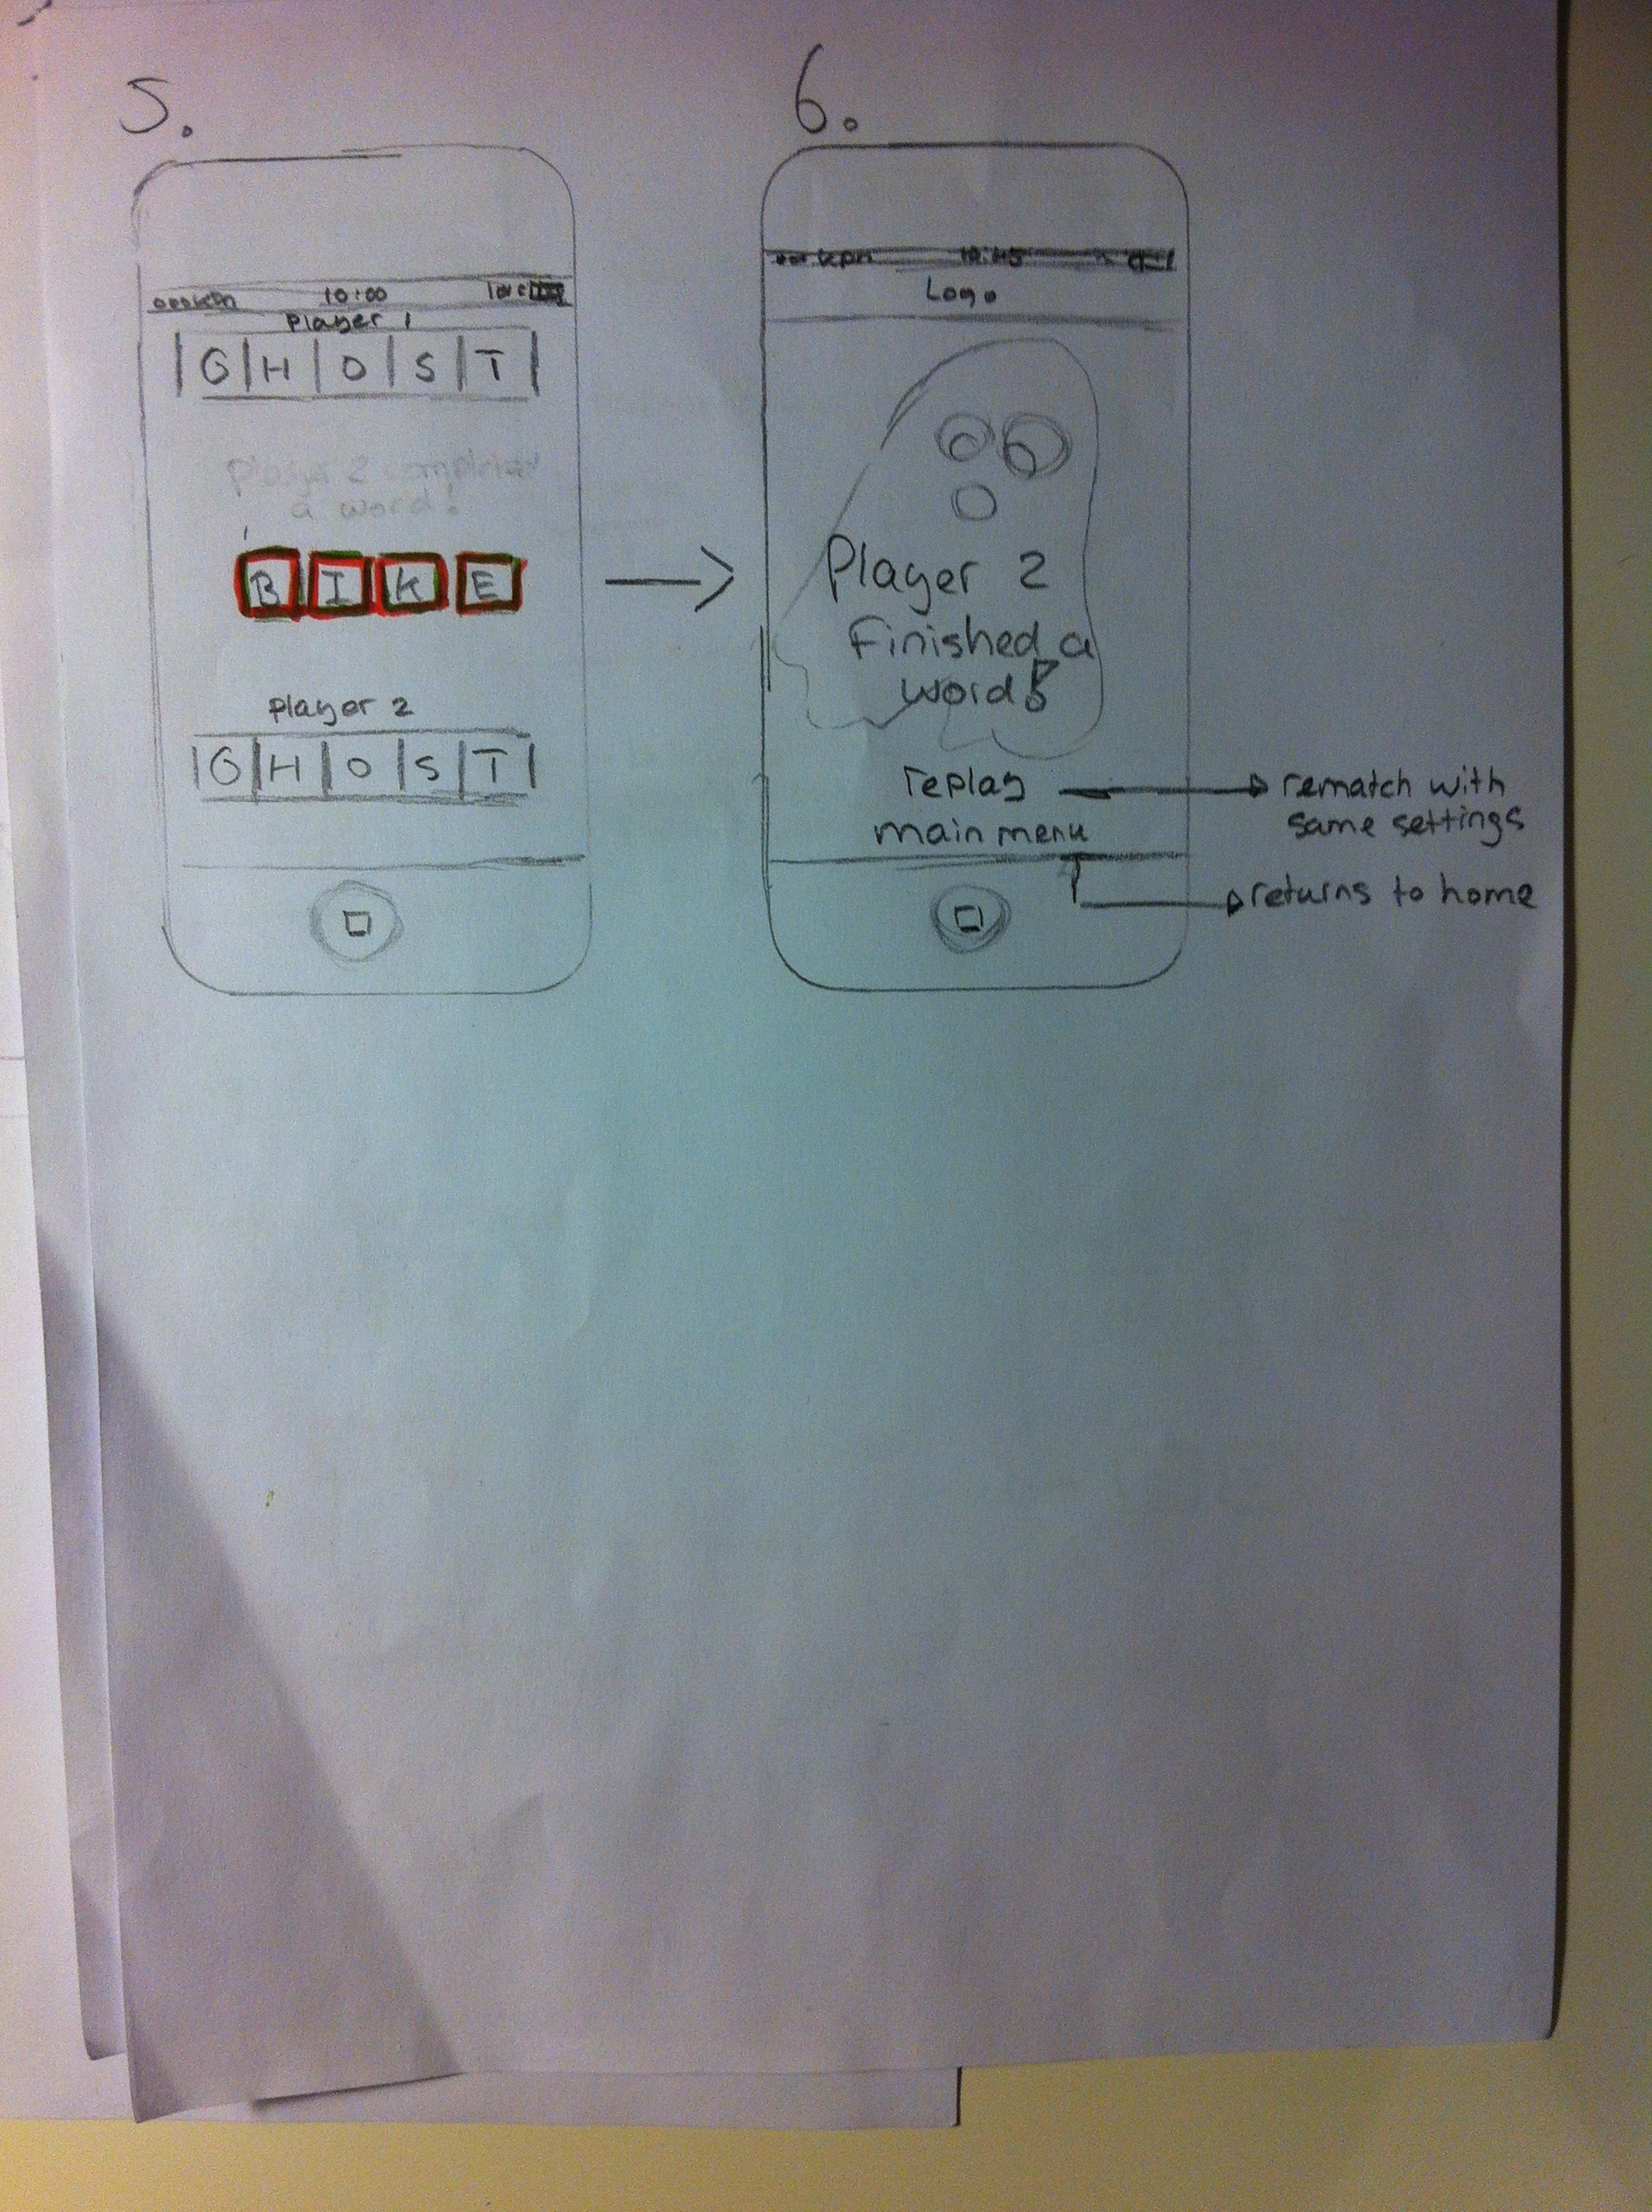 5.
10:00
Player 1
G H O S T
Player 2 completed
a word!
B I K E
player 2
G H O S T
6.
kpn
10:45
Logo
Player 2
Finished a
word!
replay
main menu
rematch with
same settings
returns to home